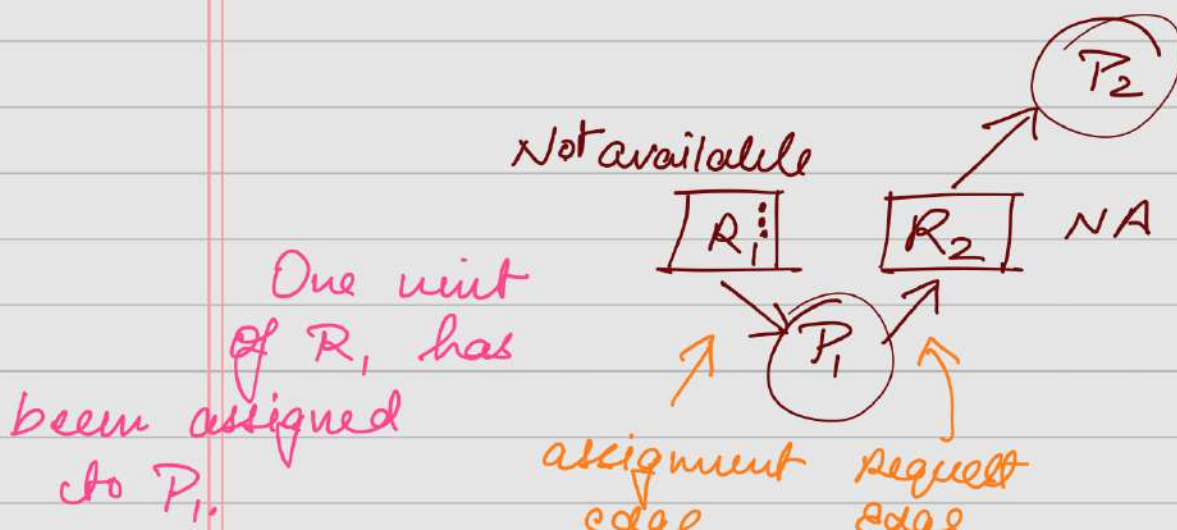 P2
Not available
R1 R2 NA
One unit
of R1 has
been assigned
to P1.
P1
assignment request
edge edge